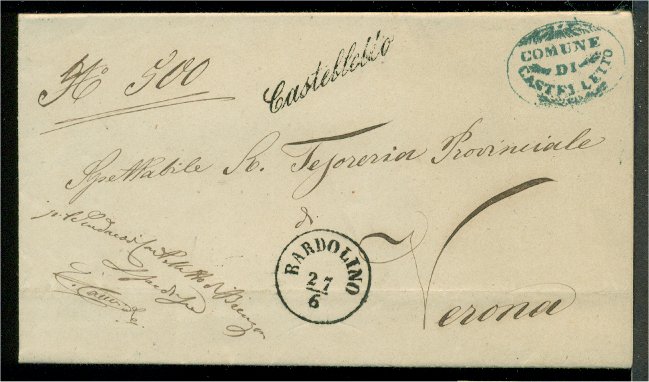 N.º 500
Castelletto
COMUNE
DI
CASTELLETTO
Spettabile R. Tesoreria Provinciale
di
Verona
BARDOLINO
27
6